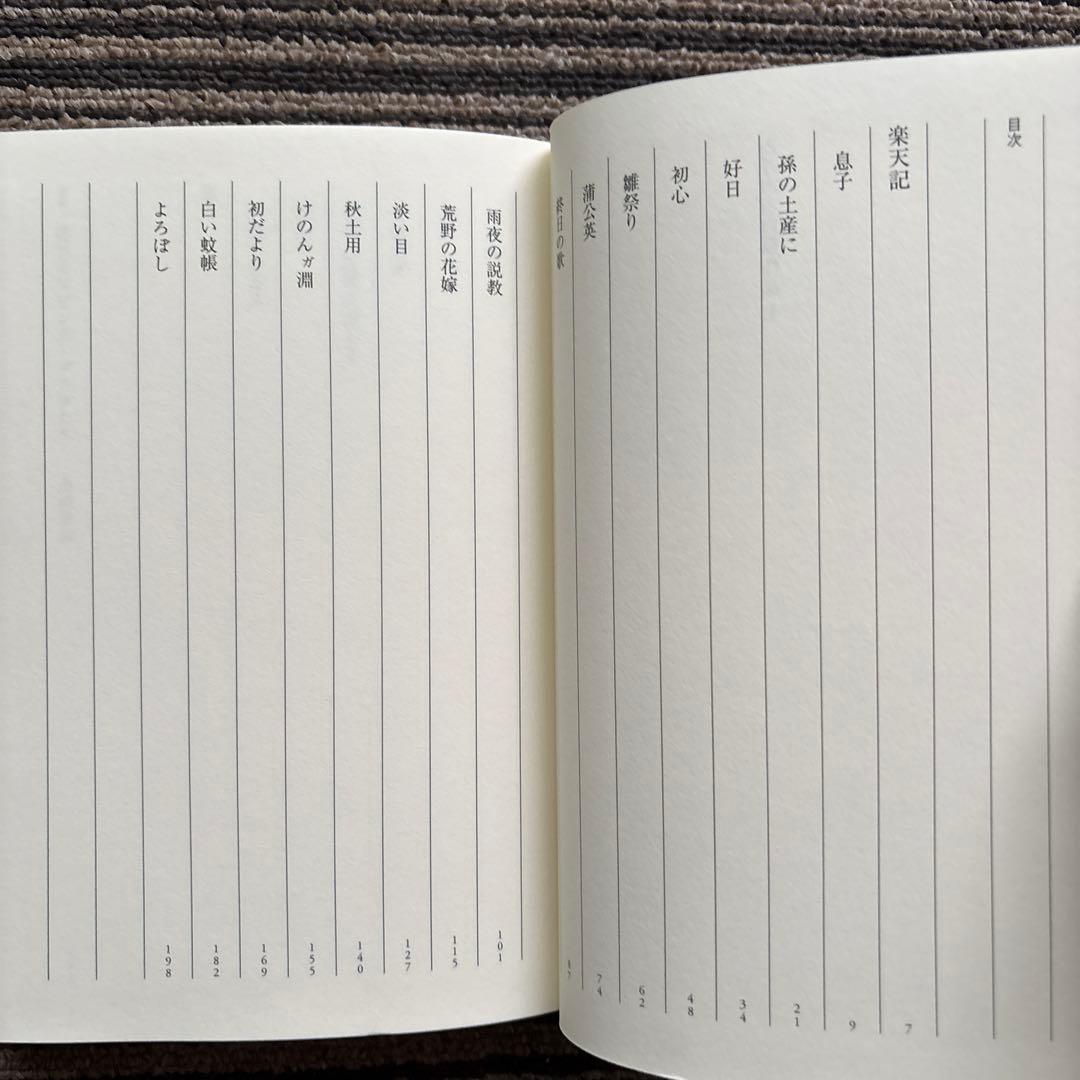 目次
楽天記 7
息子 9
孫の土産に 21
好日 34
初心 48
雛祭り 62
蒲公英 74
終日の歌
雨夜の説教 101
荒野の花嫁 115
淡い目 127
秋土用 140
けのんガ淵 155
初だより 169
白い蚊帳 182
よろぼし 198